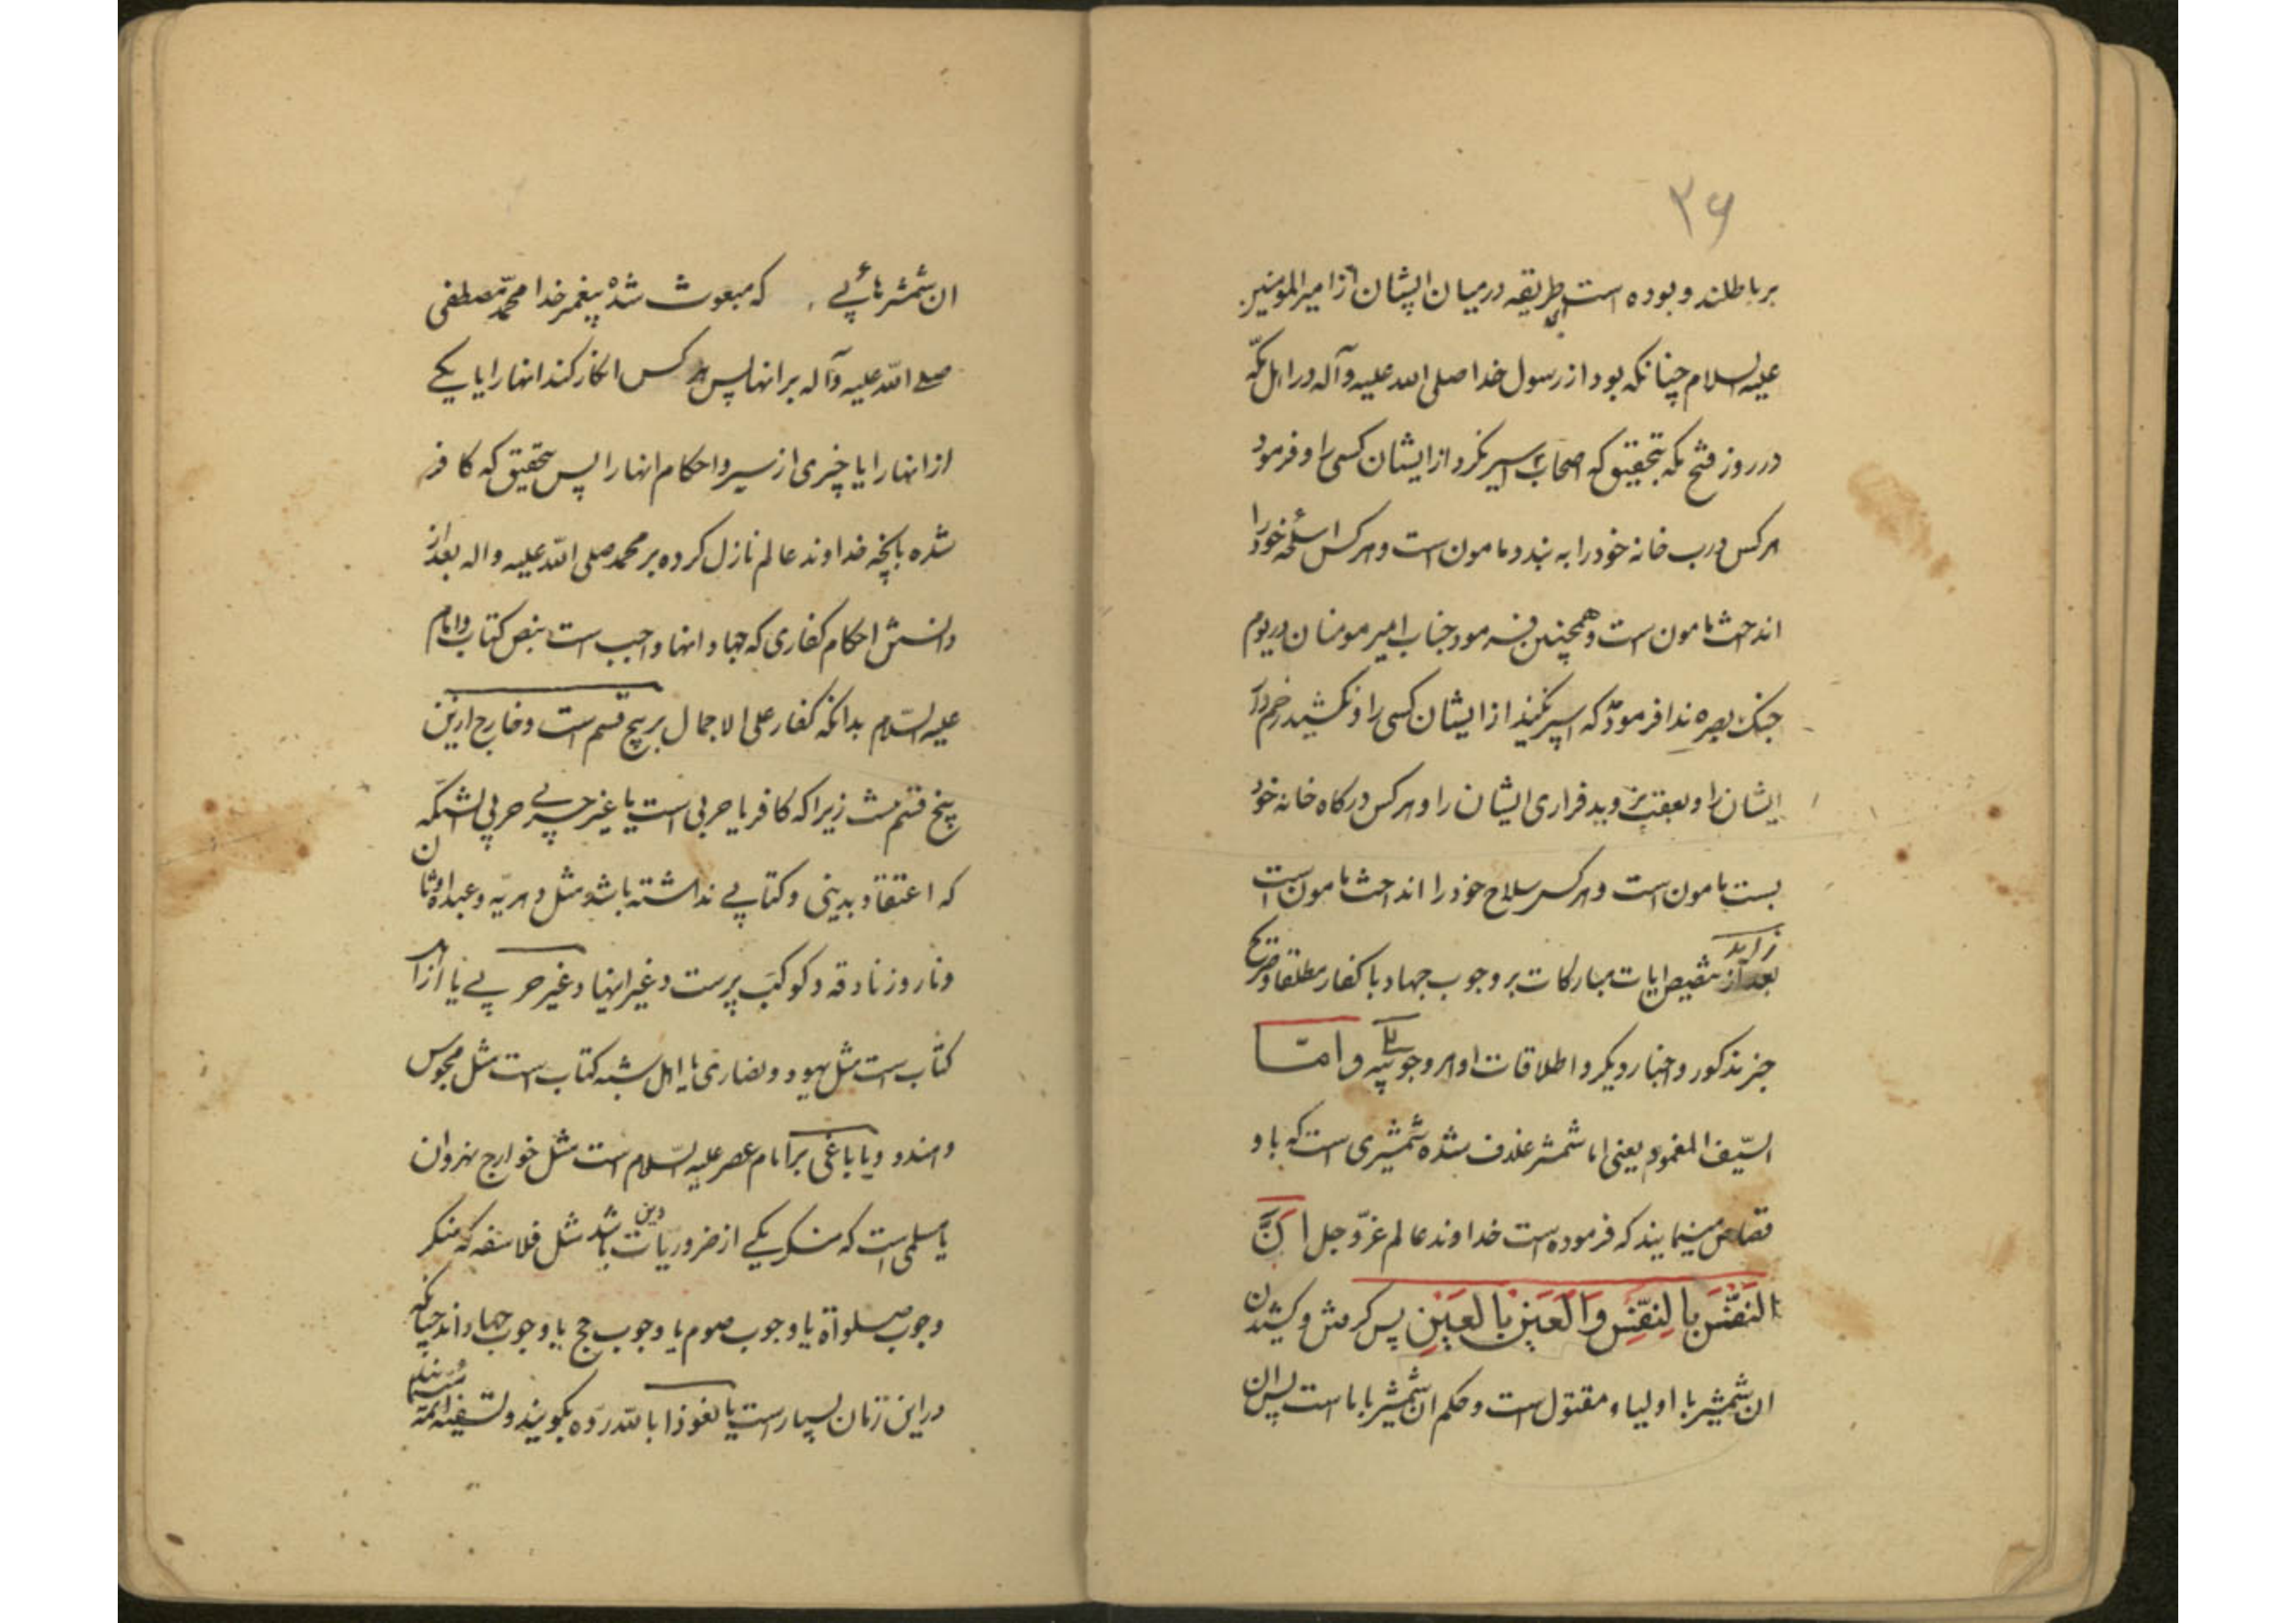 ۳۶
بر باطلند و بوده است این طریقه در میان ایشان از امیر المومنین
علیه السلام چنانکه بود از رسول خدا صلی الله علیه وآله در اهل مکه
در روز فتح مکه بتحقیق که اصحاب اسیر نکرد از ایشان کسی را و فرمود
هر کس درب خانه خود را به بندد مامون است و هر کس اسلحه خود را
انداخت مامون است و همچنین فرمود جناب امیر مومنان در یوم
جنک بصره ندا فرمود که اسیر نکنید از ایشان کسی را و نکشید زخم دار
ایشان را و بعقب نروید فراری ایشان را و هر کس درکاه خانه خود
بست مامون است و هر کس سلاح خود را انداخت مامون است
بعد از تنصیص ایات مبارکات بر وجوب جهاد با کفار مطلقا و صریح
خبر مذکور و اخبار دیکر و اطلاقات اوامر وجوبیه و امّا
السّیف المغمود یعنی اما شمشیر غلاف شده شمشیری است که با و
قصاص مینمایند که فرموده است خداوند عالم عزّ و جل اَنَّ
النَفسَ بِالنَفسِ وَالعَینَ بِالعَینِ پس کرفتن و کشیدن
ان شمشیر با اولیاء مقتول است و حکم ان شمشیر با ما است پس ان
ان شمشیرهائی که مبعوث شده پیغمبر خدا محمّد مصطفی
صلی الله علیه وآله بر انها پس هر کس انکار کند انها را یا یکی
از انها را یا چیزی از سیر و احکام انها را پس بتحقیق که کافر
شده بانچه خداوند عالم نازل کرده بر محمد صلی الله علیه واله بعد از
دانستن احکام کفاری که جهاد انها واجب است بنص کتاب و امام
علیه السّلام بدانکه کفار علی الاجمال بر پنج قسم است و خارج از این
پنج قسم نیست زیرا که کافر یا حربی است یا غیر حربی حربی انستکه
که اعتقاد بدینی و کتابی نداشته باشد مثل دهریّه و عبده اوثان
و نار و زنادقه و کوکب پرست و غیر اینها و غیر حربی یا از اهل
کتاب است مثل یهود و نصاری یا اهل شبه کتاب است مثل مجوس
و هندو و یا باغی بر امام عصر علیه السّلام است مثل خوارج نهروان
یا مسلمی است که منکر یکی از ضروریّات دین باشد مثل فلاسفه که منکر
وجوب صلوة یا وجوب صوم یا وجوب حج یا وجوب جهاد اند چنانکه
در این زمان بسیار است یا نعوذا بالله ردّه بکویند و ائمّه